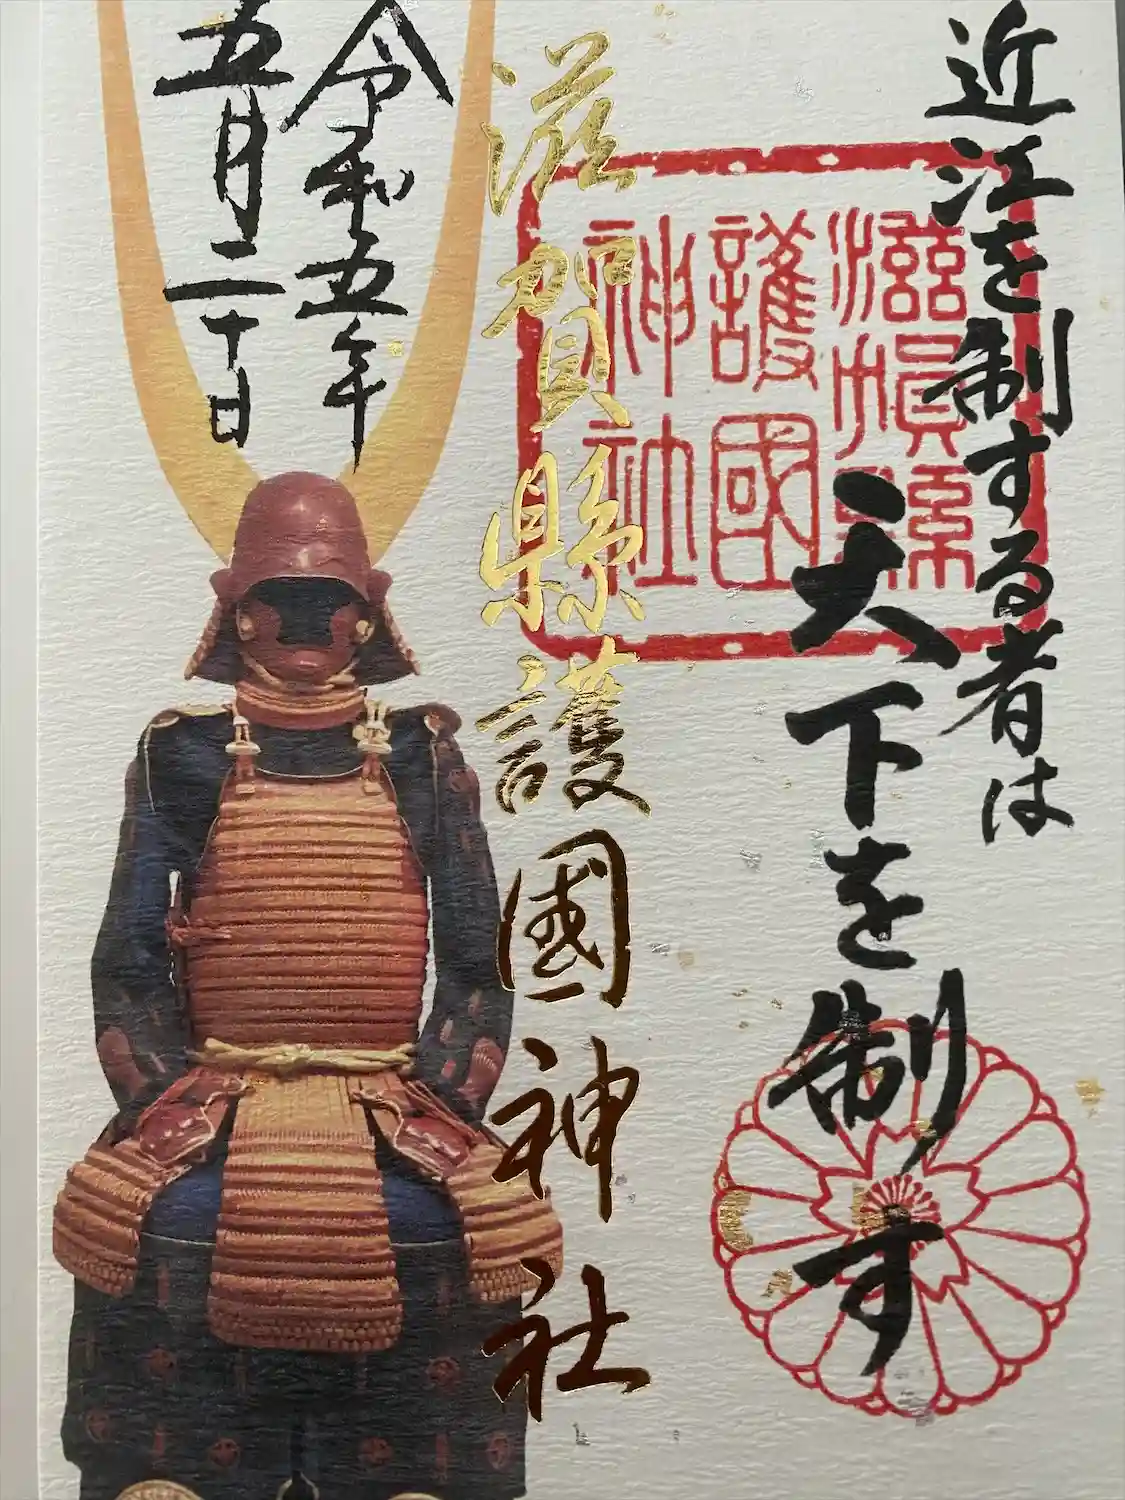 近江を制する者は
天下を制す
滋賀縣
護國
神社
滋賀縣護國神社
令和五年
五月二十日